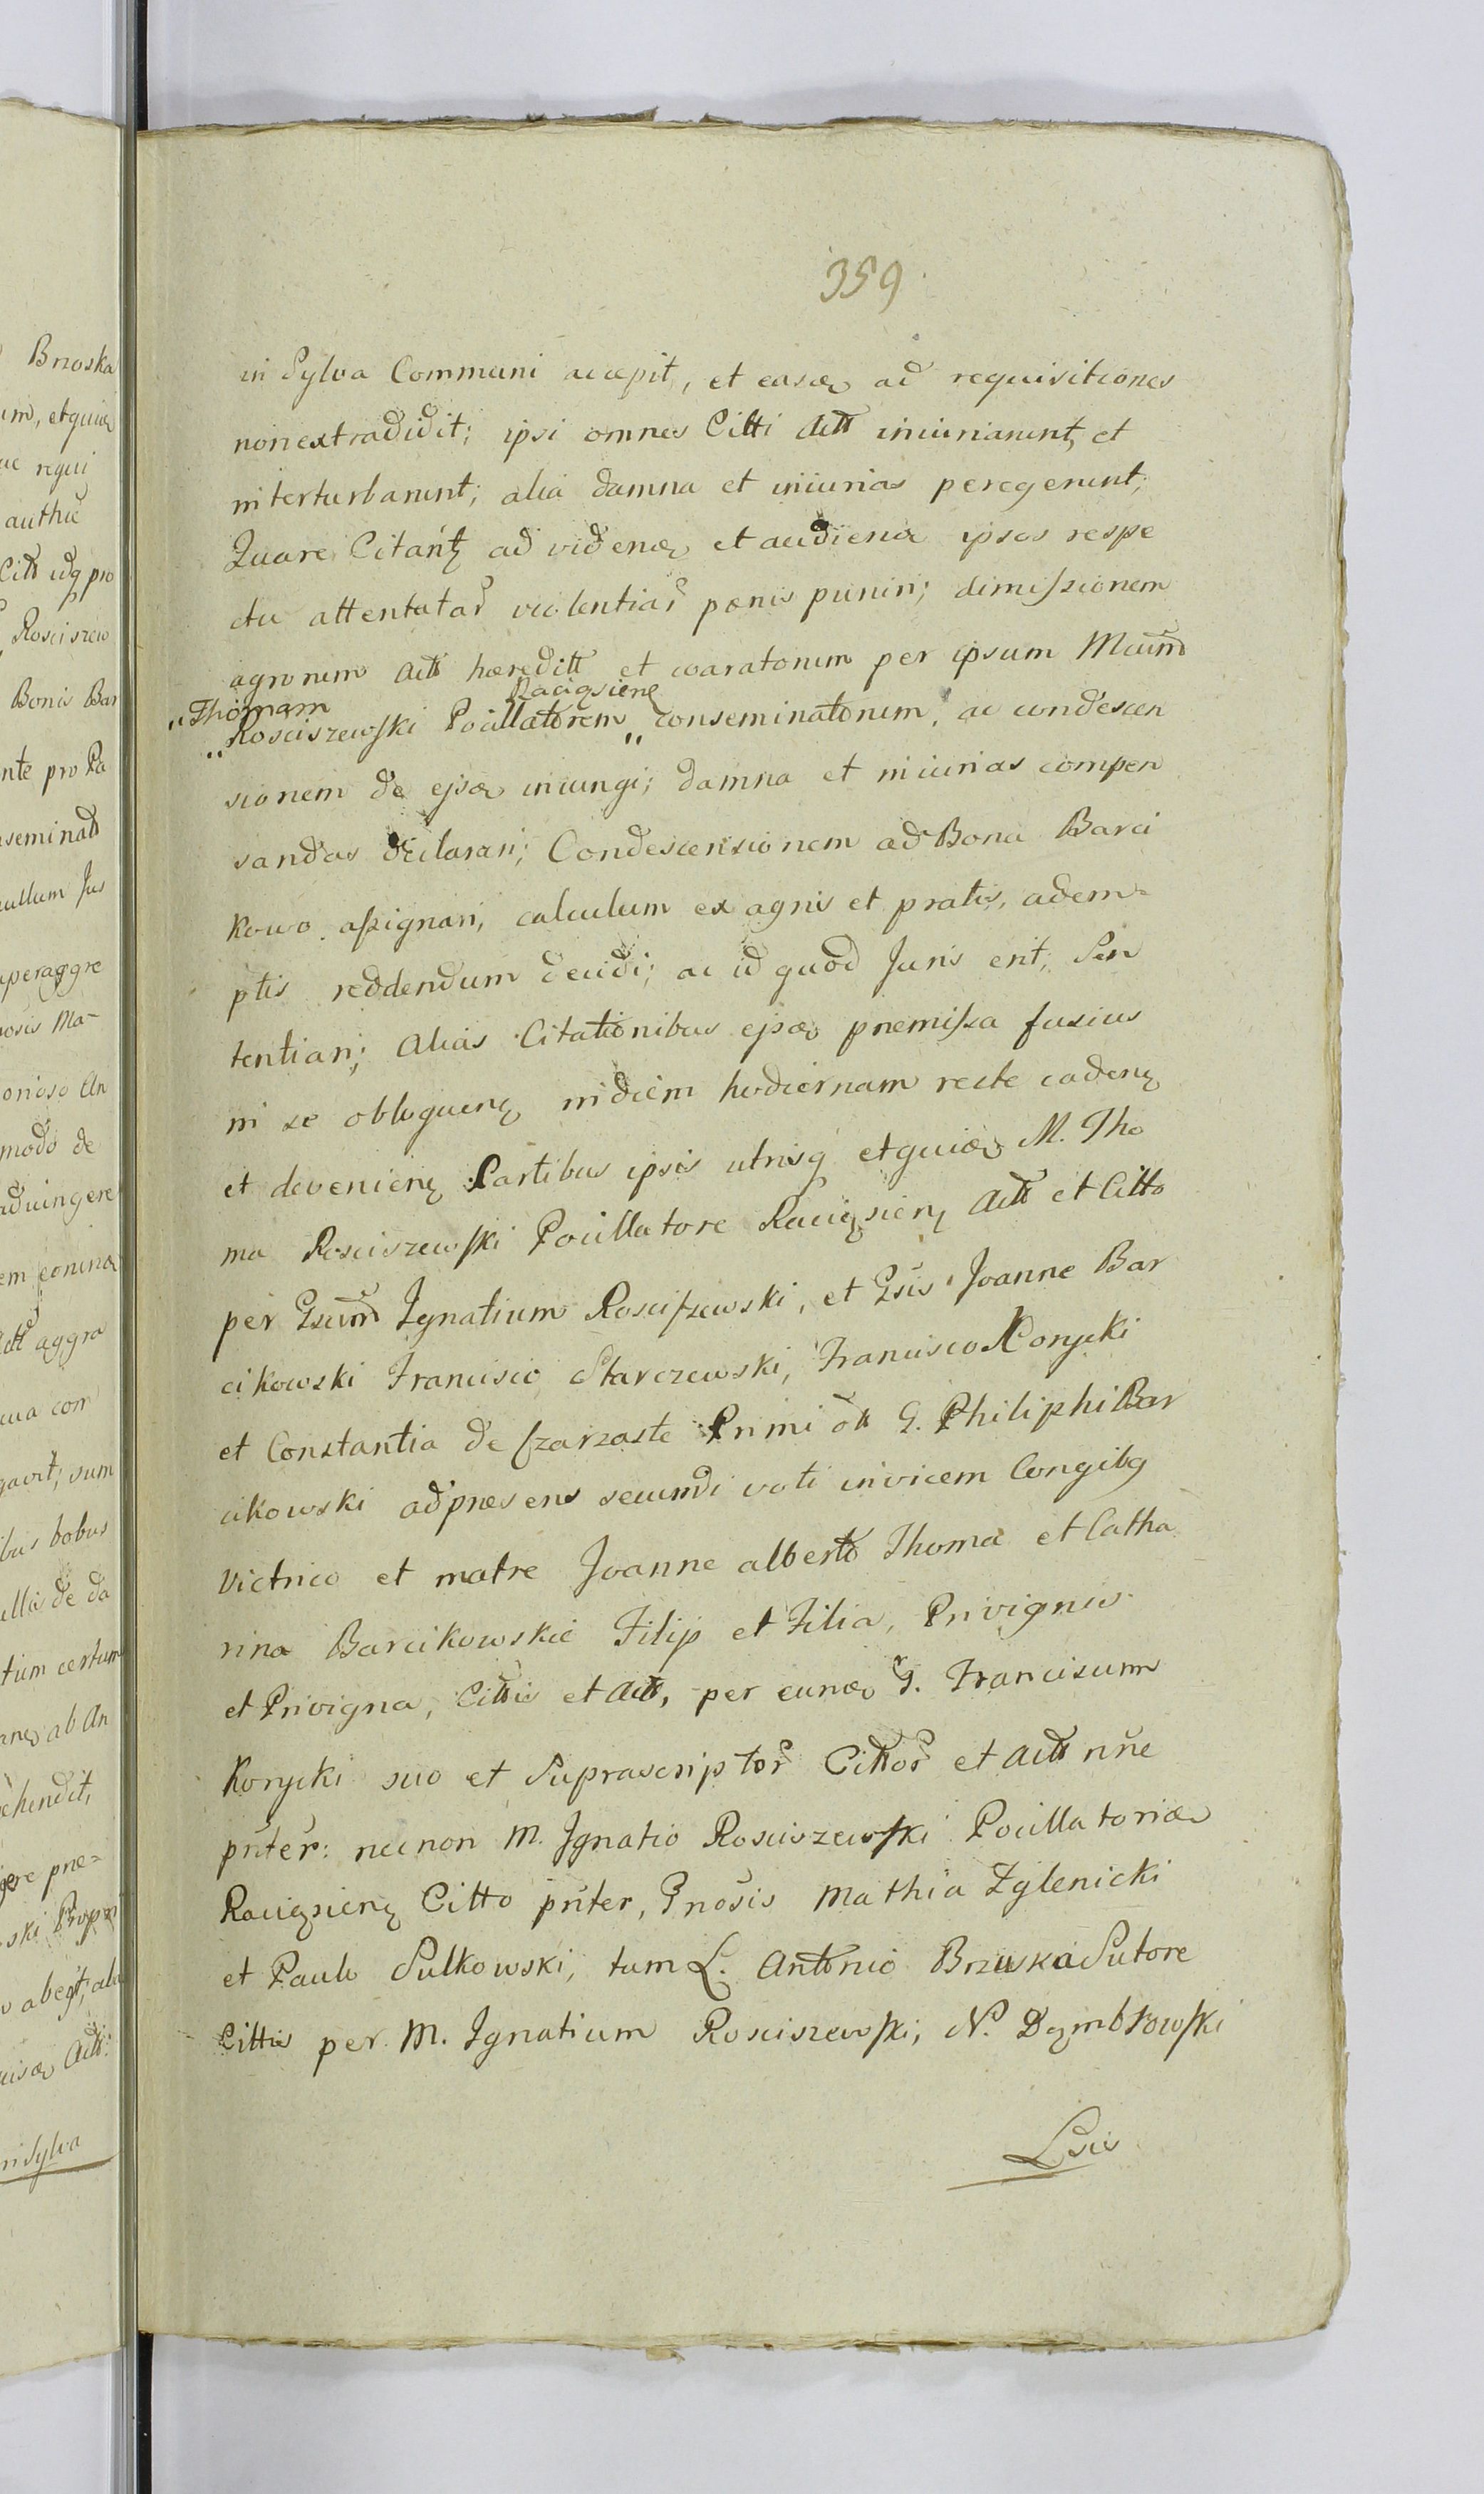 Brzoska
um, etquiaꝫ
ac requi
authū
Citt idq pro
Rosciszew
Bonis Bar
nte pro Pa
nseminatt
nullum Jus
uperaggre
nosis Ma-
onioso An
modo de
adiungere
Actt aggra
gavit; sum
ibus bobus
ulla de da
tum certum
ab An
ehendit,
gere præ-
Actt:
in Sylva
359.
in Sylva Communi accepit, et easdꝫ ad requisitiones
non extradidit; ipsi omnes Citti Actt iniuriarunt, et
interturbarunt; alia damna et iniurias peregerunt;
Quare Citantꝫ ad videndꝫ et audiend ipsos respe
ctu attentatar̃ violentiar̃ pænis puniri; dimiſsionem
agrorum Actt hæreditt et waratorum per ipsum Mcum̃
„Thomam Raciązsienę
„Rosciszewſki Pocillatorem „ conseminatorum, ac condescen
sionem de ejsdꝫ iniungi; damna et iniurias compen
sandas declarari; Condescensionem ad Bona Barci
kowo aſsignari, calculum ex agris et pratis, adem=
ptis reddendum decidi; ac id quod Juris erit, Sen
tentiari; Alias Citationibus ejsdꝫ præmiſsa fusius
in se obloquenꝫ in diem hodiernam recte cadenꝫ
et devenienꝫ Partibus ipsis utrisq etquidꝫ M. Tho
ma Rosciszewſki Pocillatore Raciązsienꝫ Actt et Citto
per Gsum̃ Ignatium Rosciſzewski, et Gsis Joanne Bar
cikowski Francisco Starczewski, Francisco Korycki
et Constantia de ſzarzaste Primi ott G. Philiphi Bar
cikowski ad præsens secundi voti invicem Congibq
Victrico et matre Joanne alberto Thoma et Catha
rina Barcikowskie Filijs et Filia, Privignis
et Privigna, Cittis et Actt, per eundꝫ G. Franciscum
Korycki suo et Suprascriptor̃ Cittor̃ et Actt nñe
pñter: necnon M. Ignatio Rosciszewſki Pocillatoridꝫ
Raciązsienꝫ Citto pñter, Gnosis Mathia Zglenicki
et Paulo Sulkowski, tum L. Antonio Brzuska Sutore
Cittis per M. Ignatium Rosciszewſki, N. Dąmbrowſki
Lsis